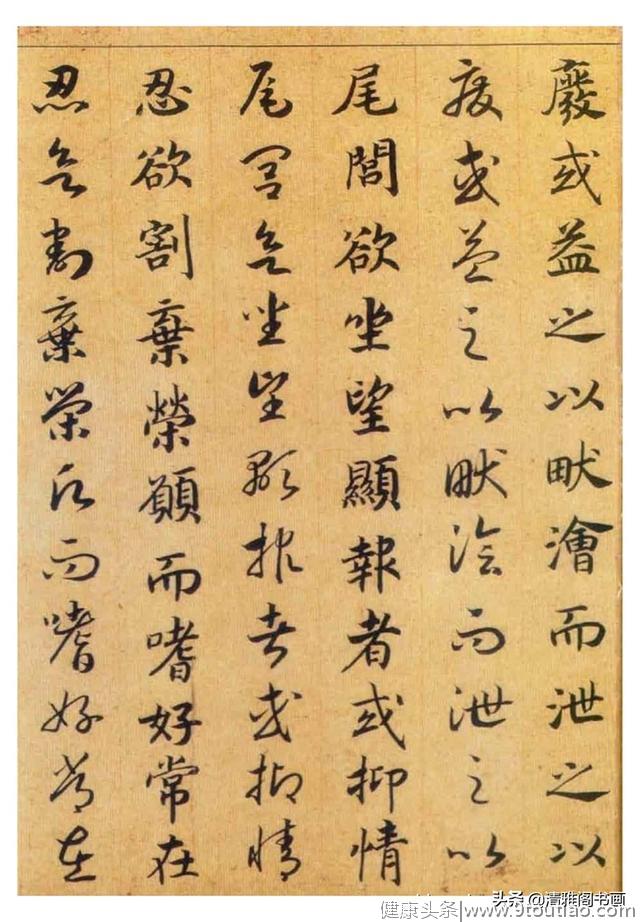 廢或益之以畎澮而泄之以
廢或益之以畎澮而泄之以
尾閭欲坐望顯報者或抑情
尾閭欲坐望顯報者或抑情
忍欲割棄榮願而嗜好常在
忍欲割棄榮願而嗜好常在
头条 @清雅阁书画
健康头条 www.9toutiao.com